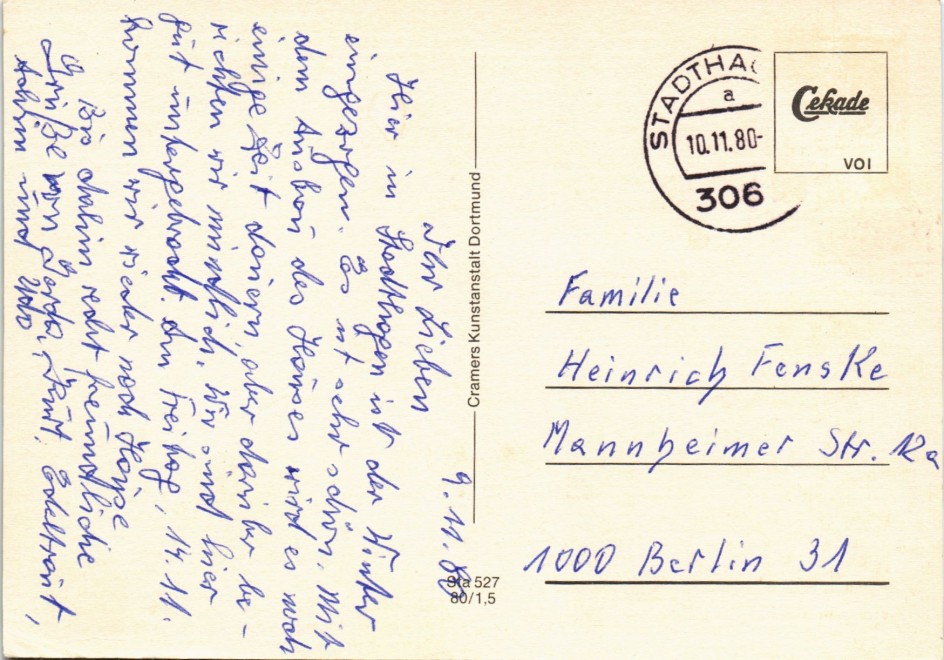 9.11.80
Ihr Lieben
Hier in Stadthagen ist der Winter
eingezogen. Es ist sehr schön. Mit
dem Ausbau des Hauses wird es noch
einige Zeit dauern, aber darüber be-
richten wir mündlich. Wir sind hier
gut untergebracht. Am Freitag, 14.11.
kommen wir wieder nach Hause
Bis dahin recht freundliche
Grüße von Gerda, Kurt, Edeltraut,
und Udo
Cramers Kunstanstalt Dortmund
Sta 527
80/1,5
STADTHAG
a
10.11.80-
306
Cekade
VOI
Familie
Heinrich Fenske
Mannheimer Str. 12a
1000 Berlin 31